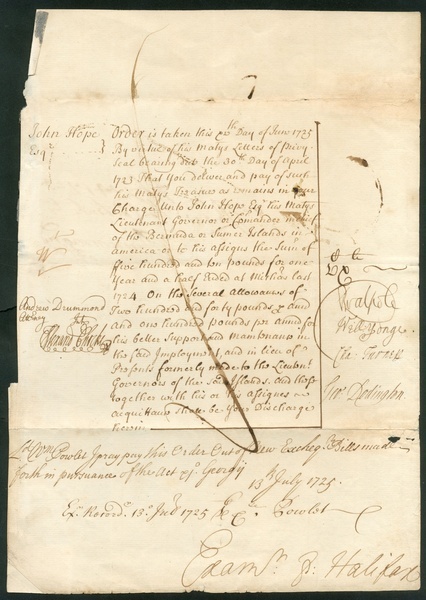 John Hope
Esqr
Order is taken this xvth Day of June 1725
By virtue of his Matys Letters of Privy
Seal bearing date the 30th Day of April
1723 That you deliver and pay of such
his Matys Treasure as remains in your
Charge Unto John Hope Esqr his Matys
Lieutenant Governor or Comander in Chief
of the Bermuda or Sumer Islands in
America or to his assigns the Sum of
ffive hundred and ten pounds for one
Year and a half Ended at Michas last
1724 On the Several Allowances of
Two hundred and forty pounds p ann
and One hundred pounds per annum for
his better Support and Maintenance in
the said Imployment, and in lieu of
Presents formerly made to the Lieutent
Governors of the said Islands. And these
together with his or his assignes
acquittance shall be Your Discharge
herein
Andrew Drummond
Atty
R Walpole
Will Yonge
Geo Dodington
Ld Wm Powlet I pray pay this Order Out of New Excheqr Bills made
forth in pursuance of the Act xjo Georgij
13th July 1725.
Exr Recordr 13o July 1725 Wm Powlet
Examr pr Halifax